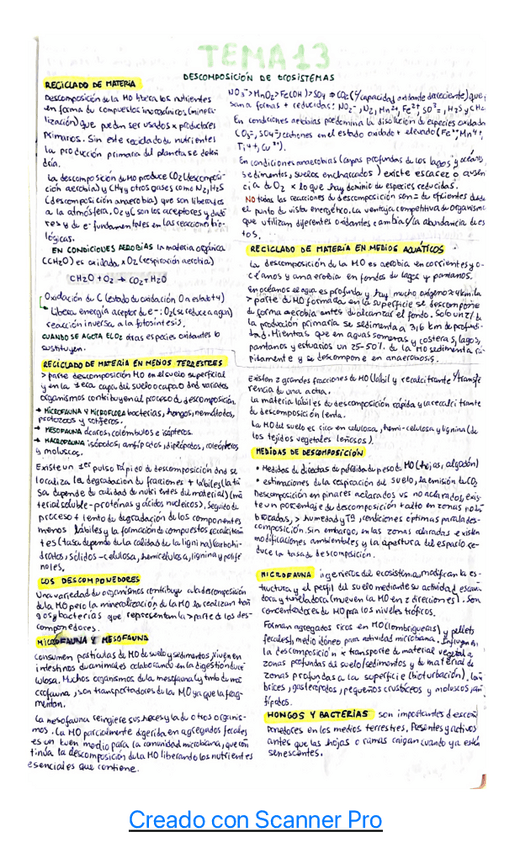 TEMA 13
DESCOMPOSICIÓN DE ECOSISTEMAS
RECICLADO DE MATERIA
Descomposición de la MO libera los nutrientes
en forma de compuestos inorgánicos (minera-
lización) que pueden ser usados x productores
primarios. Sin este reciclado de nutrientes
la producción primaria del planeta se deten
dría.
La descomposición de MO produce CO2 (descomposi-
ción aerobia) y CH4 y otros gases como N2, H2S
(descomposición anaerobia) que son liberados
a la atmósfera. O2 y C son los aceptores y dado
res y de e- fundamentales en las reacciones bio-
lógicas.
EN CONDICIONES AEROBIAS la materia orgánica
(CH2O) es oxidada x O2 (respiración aerobia)
CH2O + O2 → CO2 + H2O
Oxidación de C (estado de oxidación 0 a estado +4)
Libera energía aceptor de e-: O2 (se reduce a agua)
reacción inversa a la fotosíntesis.
CUANDO SE AGOTA EL O2 otras especies oxidantes lo
sustituyen.
RECICLADO DE MATERIA EN MEDIOS TERRESTRES
> parte descomposición MO en el suelo superficial
y en la 1era capa del suelo ocupado dnd variados
organismos contribuyen al proceso de descomposición.
→ MICROFAUNA Y MICROFLORA bacterias, hongos, nematodos,
protozoos y rotíferos.
→ MESOFAUNA ácaros, colémbolos e isópteros.
→ MACROFAUNA isópodos, anfípodos, diplópodos, coleópteros
y moluscos.
Existe un 1er pulso rápido de descomposición dnd se
localiza la degradación de fracciones + lábiles (la ta
sa depende de calidad de nutrientes del material) (ma
terial soluble - proteínas y ácidos nucleicos). Seguido de
proceso + lento de degradación de los componentes
menos lábiles y la formación de compuestos recalcitran
tes (tasa depende de la calidad de la lignina) (carbohi-
dratos, sólidos - celulosa, hemicelulosa, lignina y polife
noles.
LOS DESCOMPONEDORES
Una variedad de organismos contribuye a la descomposición
de la MO pero la mineralización de la MO la realizan hon
gos y bacterias que representan la > parte de los des-
componedores.
MICROFAUNA Y MESOFAUNA
consumen partículas de MO de suelo y sedimentos, viven en
intestinos de animales colaborando en la digestión de ce
lulosa. Muchos organismos de la mesofauna y tmb de ma
crofauna, son transportadores de la MO ya que la frag-
mentan.
La mesofauna reingiere sus heces y la de otros organis-
mos. La MO parcialmente digerida en agregados fecales
es un buen medio para la comunidad microbiana, que con
tinúa la descomposición de la MO liberando los nutrientes
esenciales que contiene.
NO3- > MnO2 > Fe(OH)3 > SO4 > CO2 (capacidad oxidante decreciente) que
van a formas + reducidas: NO2-, N2, Mn2+, Fe2+, SO2, H2S y CH4
En condiciones aerobias predomina la disolución de especies oxidadas
CO3=, SO4=) cationes en el estado oxidado + elevado (Fe3+, Mn4+,
Ti4+, Cu2+).
En condiciones anaerobias (capas profundas de los lagos y océanos,
sedimentos, suelos encharcados) existe escasez o ausen
cia de O2 x lo que hay dominio de especies reducidas.
NO todas las reacciones de descomposición son = de eficientes desde
el punto de vista energético. La ventaja competitiva de organismos
que utilizan diferentes oxidantes cambia y la abundancia de es
tos.
RECICLADO DE MATERIA EN MEDIOS ACUÁTICOS
La descomposición de la MO es aerobia en corrientes y o-
céanos y anaerobia en fondos de lagos y pantanos.
En océanos el agua es profunda y hay mucho oxígeno
> parte de MO formada en la superficie se descompone
de forma aerobia antes de alcanzar el fondo. Solo un 2% de
la producción primaria se sedimenta a 3'6 km de profundi-
dad. Mientras que en aguas someras y costeras, lagos,
pantanos y estuarios un 25-50% de la MO sedimenta rá-
pidamente y se descompone en anaerobiosis.
Existen 2 grandes fracciones de MO (lábil y recalcitrante) transfe
rencia de una a otra.
La materia lábil es de descomposición rápida y la recalcitrante
de descomposición lenta.
La MO del suelo es rica en celulosa, hemi-celulosa y lignina (de
los tejidos vegetales leñosos).
MEDIDAS DE DESCOMPOSICIÓN
• Medidas directas de pérdida de peso de MO (hojas, algodón)
• estimaciones de la respiración del suelo, la emisión de CO2
Descomposición en pinares aclarados vs no aclarados, exis-
te un porcentaje de descomposición + alto en zonas no
aclaradas, > humedad y Tª, condiciones óptimas para la des-
composición. Sin embargo, en las zonas aclaradas existen
modificaciones ambientales y la apertura del espacio re-
duce la tasa de descomposición.
MICROFAUNA ingenieros del ecosistema, modifican la es-
tructura y el perfil del suelo mediante su actividad excava
dora y tuneladora (mueven la MO en 2 direcciones). Son
concentradores de MO para los niveles tróficos.
Forman agregados ricos en MO (lombrigueras) y pellets
fecales (medio idóneo para actividad microbiana,
la descomposición x transporte de material vegetal a
zonas profundas del suelo/sedimentos y de material de
zonas profundas a la superficie (bioturbación), lom
brices, gasterópodos, pequeños crustáceos y moluscos, an
fípodos.
HONGOS Y BACTERIAS son importantes descom
ponedores en los medios terrestres. Presentes y activos
antes que las hojas o ramas caigan cuando ya están
senescentes.
Creado con Scanner Pro